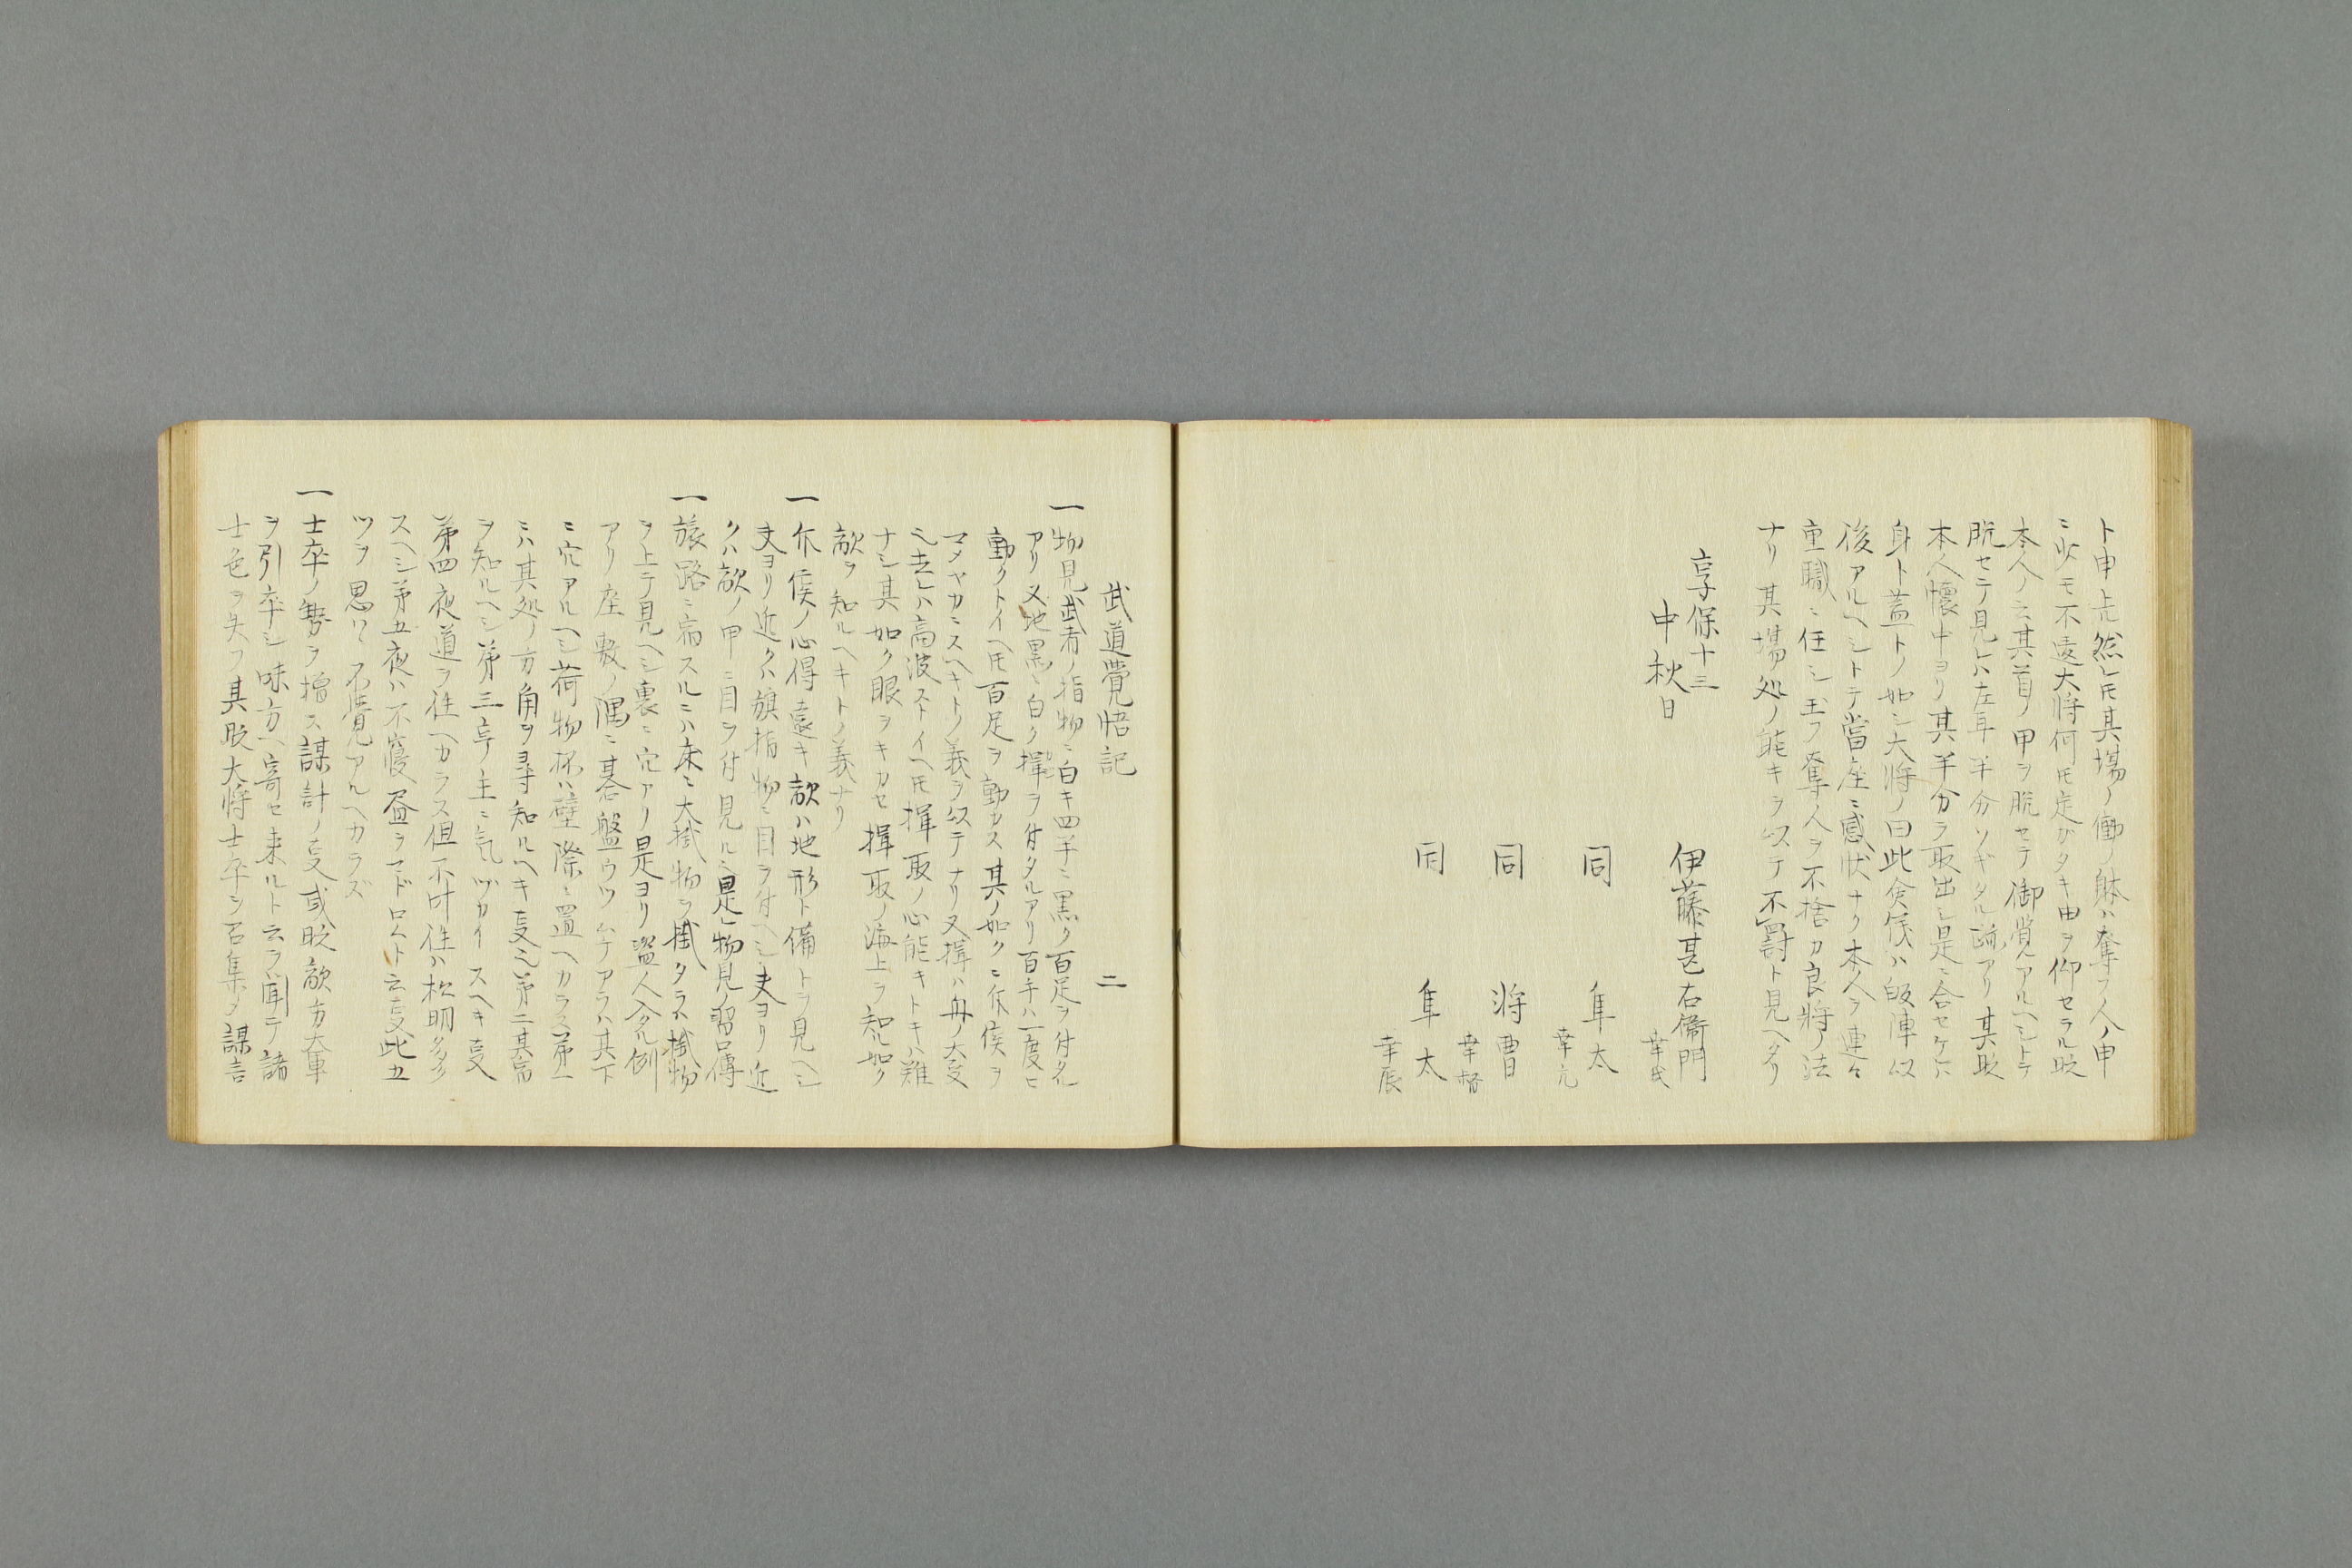 ト申上ル然レ𪜈其場ノ働ノ躰ハ奪フ人ノ申
ニ少モ不違大将何𪜈定ガタキ由ヲ仰セラル時
本人ノ云其首ノ甲ヲ脱セテ御覚アルヘシトテ
脱セテ見レハ左耳半分ソギタル跡アリ其時
本人懐中ヨリ其半分ヲ取出シ是ニ合セケレハ
身ト蓋トノ如シ大将ノ曰此僉儀ハ皈陣以
後アルヘシトテ當座ニ感状ナリ本人ヲ連々
重職ニ任シ玉フ奪人ヲ不捨カ良將ノ法
ナリ其場処ノ能キヲ以テ不罸ト見ヘタリ
享保十三
中秋日
伊藤甚右衛門
幸氏
同 隼太
幸元
同 将曹
幸督
同 隼太
幸辰
武道覺悟記 二
一物見武者ノ指物ニ白キ四半ニ黒ク百足ヲ付タル
アリ又地黒ニ白ク揮ヲ付タルアリ百手ハ一度ニ
動クトイヘ𪜈百足ヲ動カス其ノ如クニ斥侯ヲ
マメヤカニスヘキトノ義ヲ以テナリ又揮ハ舟ノ大事
ニ去レハ高波ストイヘ𪜈揮取ノ心能キトキハ難
ナシ其如ク眼ヲキカセ揮取ノ海上ヲ知ル如ク
敵ヲ知ルヘキトノ義ナリ
一斥侯ノ心得遠キ敵ハ地形ト備トヲ見ヘシ
夫ヨリ近クハ旗指物ニ目ヲ付ヘシ夫ヨリ近
クハ敵ノ甲ニ目ヲ付見ル是レ物見ノ習傳
一旅路ニ宿スルニハ床ニ大掛物ヲ掛タラハ掛物
ヲ上テ見ヘシ裏ニ穴アリ是ヨリ盗人入タル例
アリ座敷ノ隅ニ碁盤ウツムケアラハ其下
ニ穴アルヘシ荷物抔ハ壁際ニ置ヘカラス第一
ニハ其処ノ方角ヲ尋知ルヘキ事也第二其宿
ヲ知ルヘシ第三亭主ニ気ヅカイスヘキ事
第四夜道ヲ往ヘカラス但不叶往ハ松明多
スヘシ第五夜ハ不寝昼ヲマドロムト云事此五
ツヲ思ハヽ不覺アルヘカラズ
一士卒ノ勢ヲ増ス謀計ノ事或時敵方大軍
ヲ引卒シ味方ヘ寄セ来ルト云ヲ聞テ諸
士色ヲ失フ其時大将士卒ヲ召集メ謀言